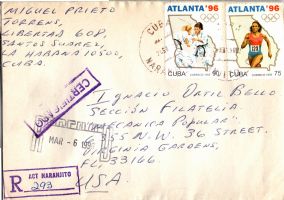 MIGUEL PRIETO
TORRENS,
LIBERTAD 608,
SANTOS SUAREZ,
LA HABANA 10500,
CUBA.
ATLANTA '96
CUBA
ATLANTA '96
CUBA 75
CERTIFICADO
IGNACIO ORTIZ BELLO
SECCIÓN FILATELIA
"MECANICA POPULAR"
N.W. 36 STREET.
VIRGINIA GARDENS,
FL-33166.
USA.
MAR -6
R
ACT NARANJITO
293